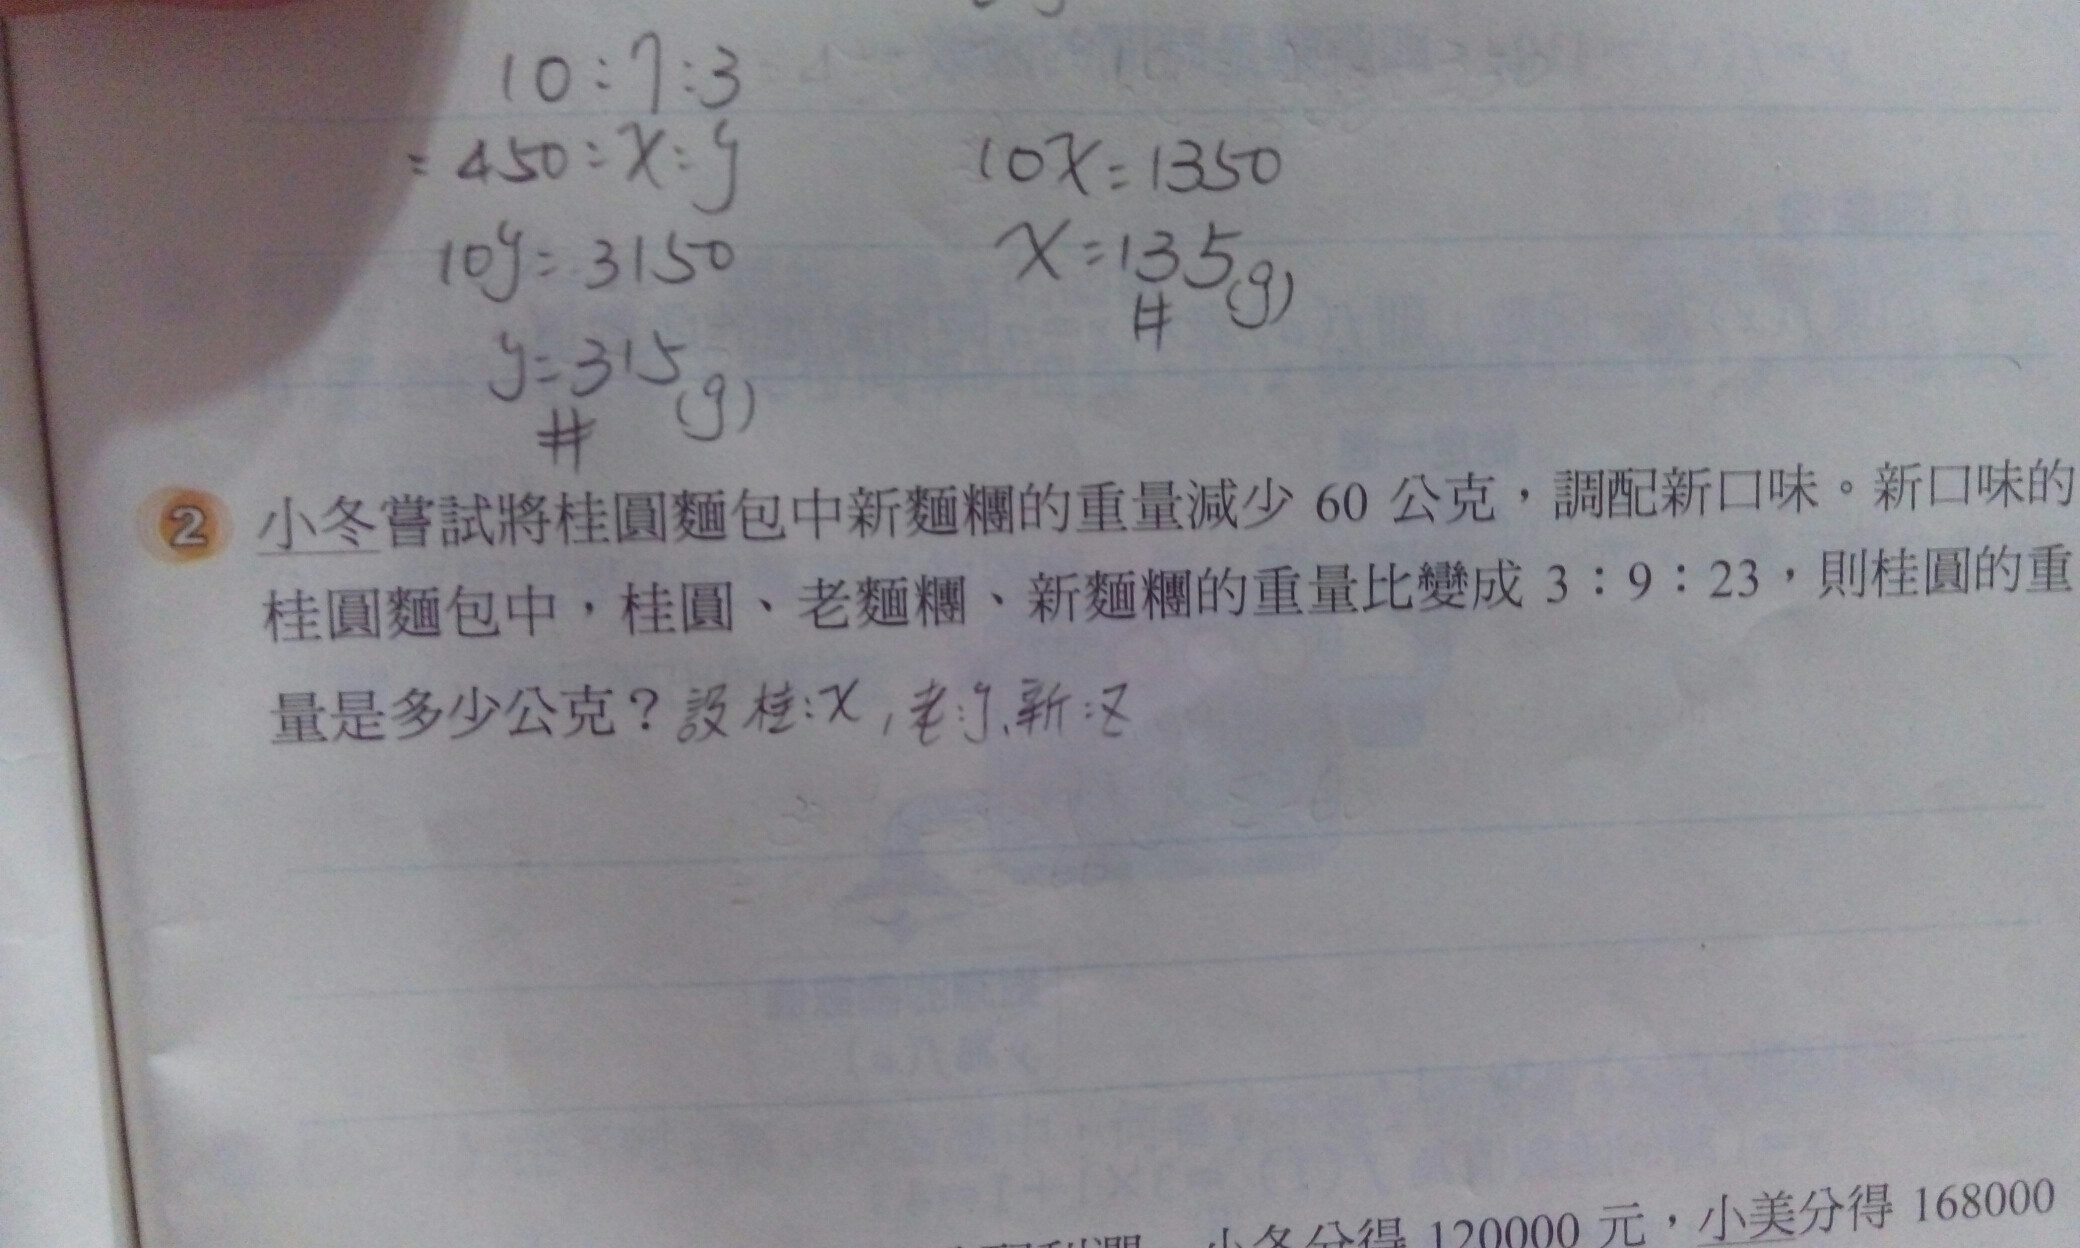 10:7:3
=450:x:y
10x=1350
10y=3150
x=135(g)
#
y=315(g)
#
2 小冬嘗試將桂圓麵包中新麵糰的重量減少 60 公克，調配新口味。新口味的
桂圓麵包中，桂圓、老麵糰、新麵糰的重量比變成 3：9：23，則桂圓的重
量是多少公克？設桂:x,老:y、新:z
小冬分得 120000 元，小美分得 168000